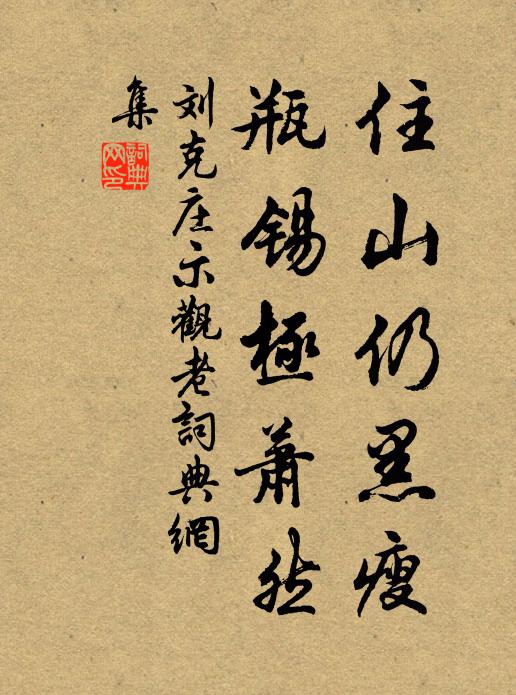 住山仍黑瘦
瓶锡極蕭然
刘克庄示觀老詞典網
集
詞典
网印